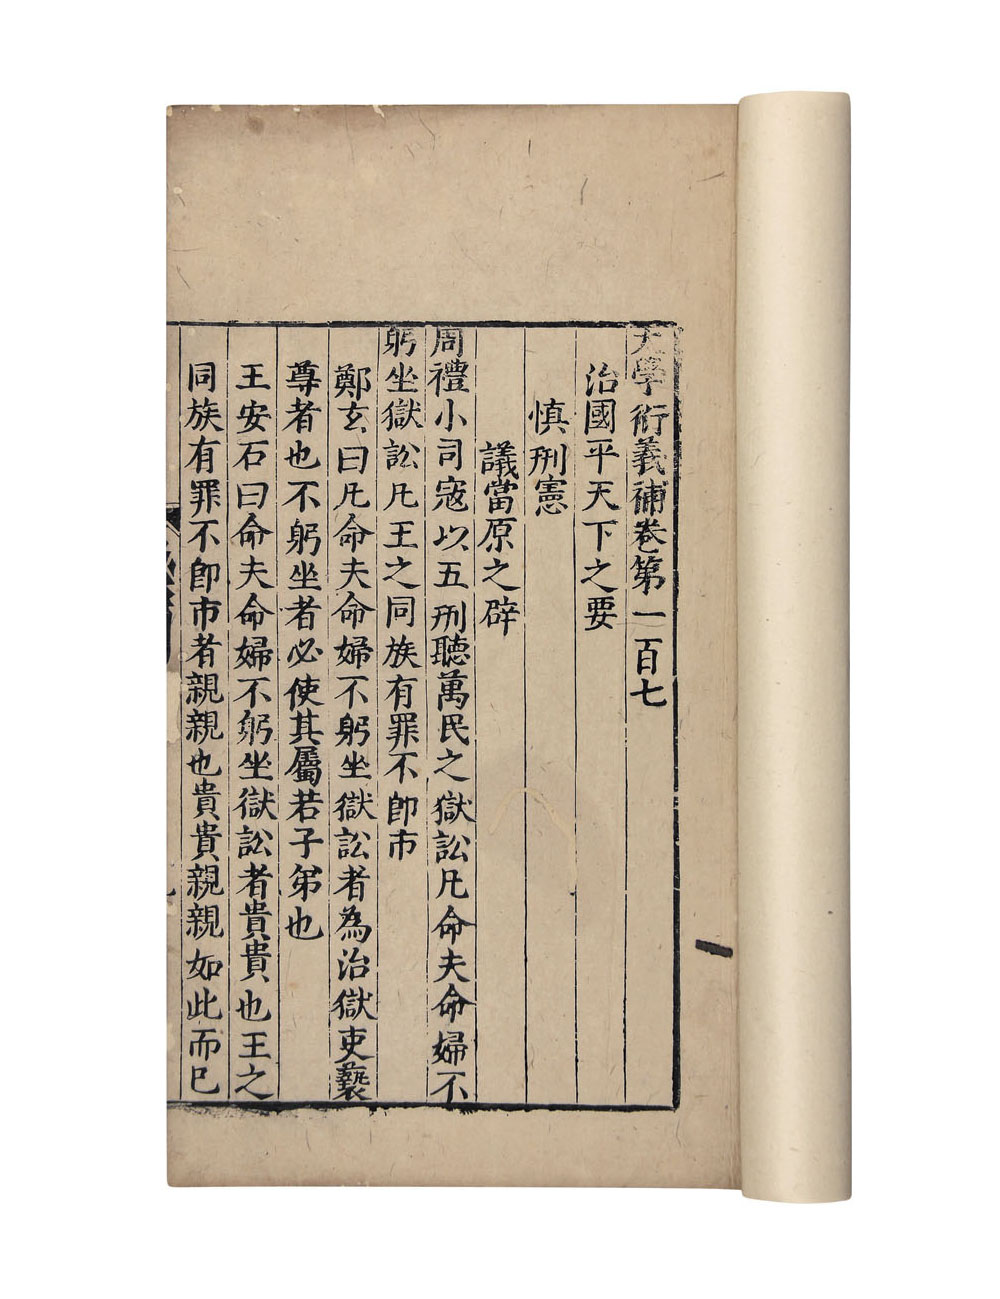 大學衍義補卷第一百七
治國平天下之要
慎刑憲
議當原之辟
周禮小司寇以五刑聽萬民之獄訟凡命夫命婦不
躬坐獄訟凡王之同族有罪不卽市
鄭玄曰凡命夫命婦不躬坐獄訟者為治獄吏褻
尊者也不躬坐者必使其屬若子弟也
王安石曰命夫命婦不躬坐獄訟者貴貴也王之
同族有罪不卽市者親親也貴貴親親如此而已